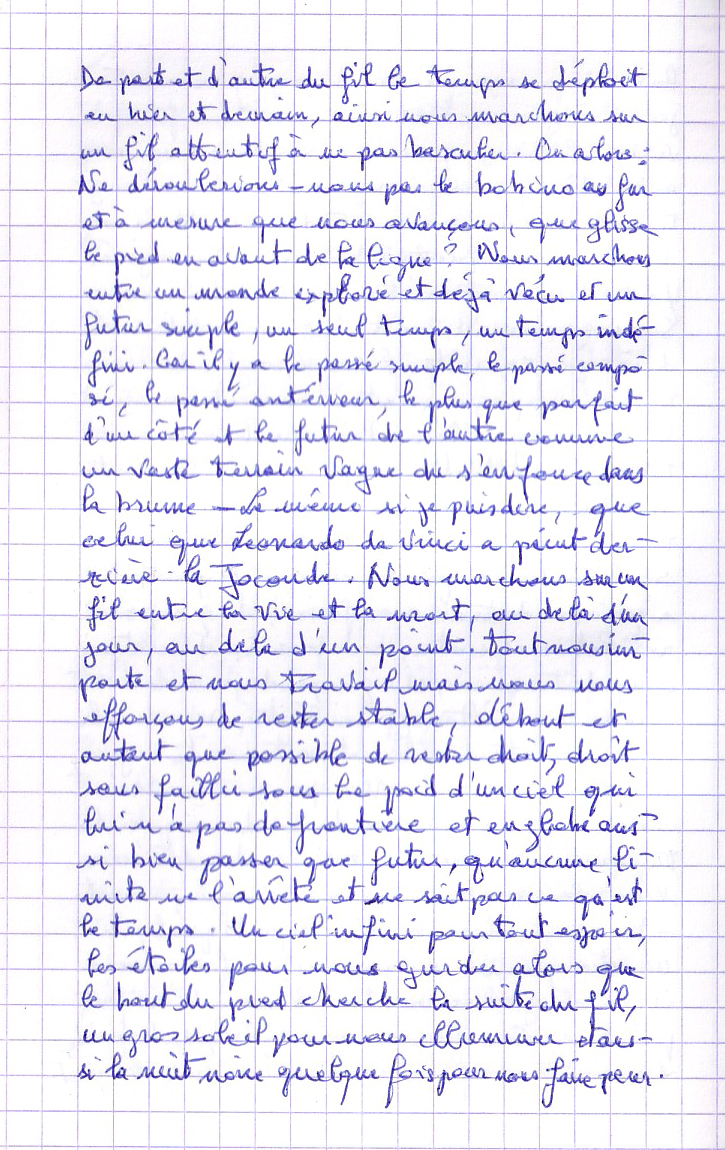 De part et d'autre du fil le temps se déploit
en hier et demain, ainsi nous marchons sur
un fil attentif à ne pas basculer. Ou alors :
Ne déroulerions-nous pas la bobine au fur
et à mesure que nous avançons, que glisse
le pied en avant de la ligne ? Nous marchons
entre un monde exploré et déjà vécu et un
futur simple, un seul temps, un temps indé-
fini. Car il y a le passé simple, le passé compo
sé, le passé antérieur, le plus que parfait
d'un côté et le futur de l'autre comme
un vaste terrain vague qui s'enfonce dans
la brume - Le même si je puis dire, que
celui que Leonardo da Vinci a peint der-
rière la Joconde. Nous marchons sur un
fil entre la vie et la mort, au delà d'un
jour, au delà d'un point. Tout nous im
porte et nous travail mais nous nous
efforçons de rester stable, débout et
autant que possible de rester droit, droit
sans faillir sous le poid d'un ciel qui
lui n'a pas de frontière et englobe aus-
si bien passer que futur, qu'aucune li-
mite ne l'arrête et ne sait pas ce qu'est
le temps. Un ciel infini pour tout espoir,
les étoiles pour nous guider alors que
le bout du pied cherche la suite du fil,
un gros soleil pour nous illuminer et aus-
si la nuit noire quelque fois pour nous faire peur.